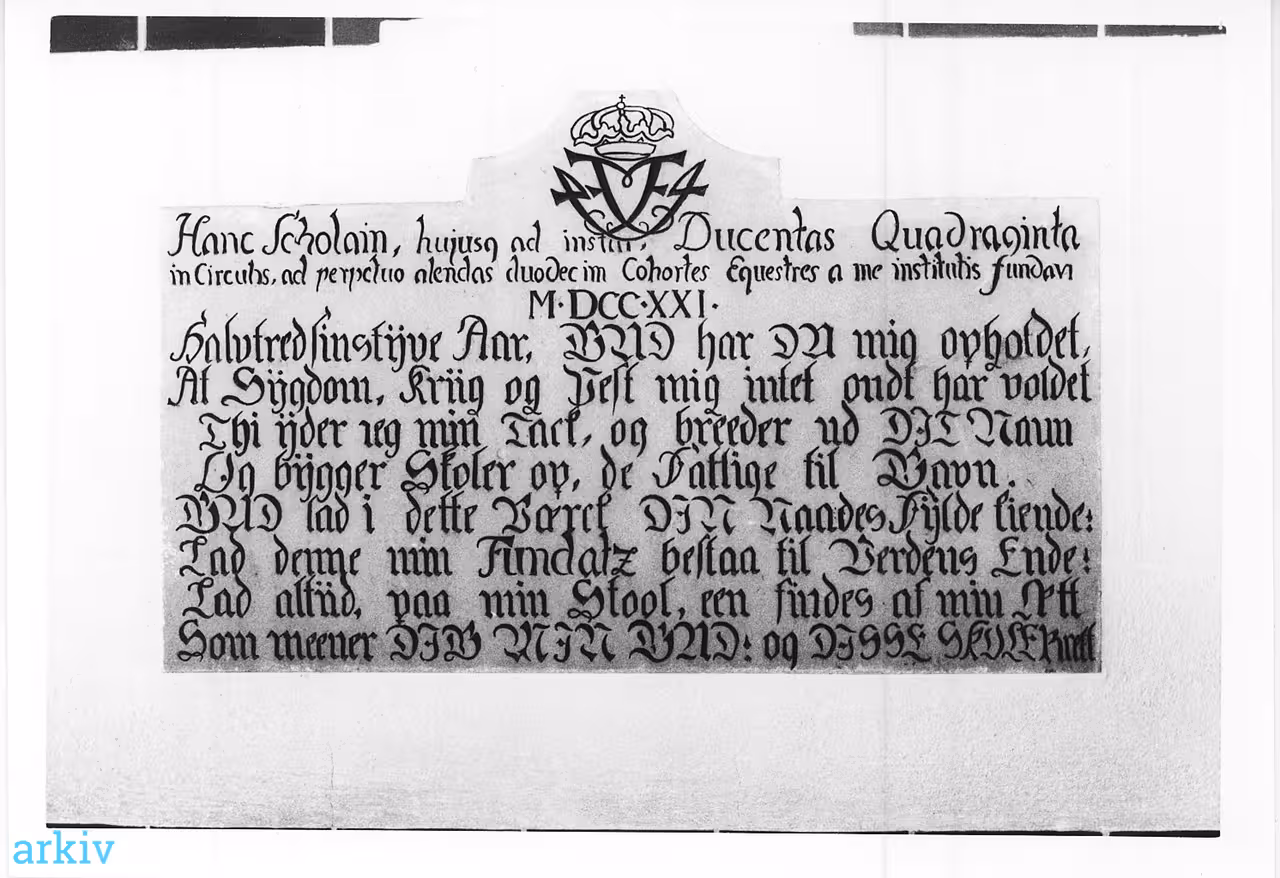 Hanc Scholam, hujusq ad instar, Ducentas Quadraginta
in Circulis, ad perpetuo alendas duodecim Cohortes Equestres a me institutis fundavi
M·DCC·XXI·
Halvtredsinstÿve Aar, GUD har DU mig opholdet,
At Sÿgdom, Kriig og Pest mig intet ondt har voldet
Thi ÿder ieg min Tack, og breeder ud DIT Naun
Og bÿgger Skoler op, de Fattige til Gavn.
GUD lad i dette Værck DIN Naades Fÿlde kiende:
Lad denne min Fundatz bestaa til Verdens Ende:
Lad altiid, paa min Skool, een findes af min Ætt
Som meener DIG MIN GUD: og DISSE SKOLE Rætt
arkiv